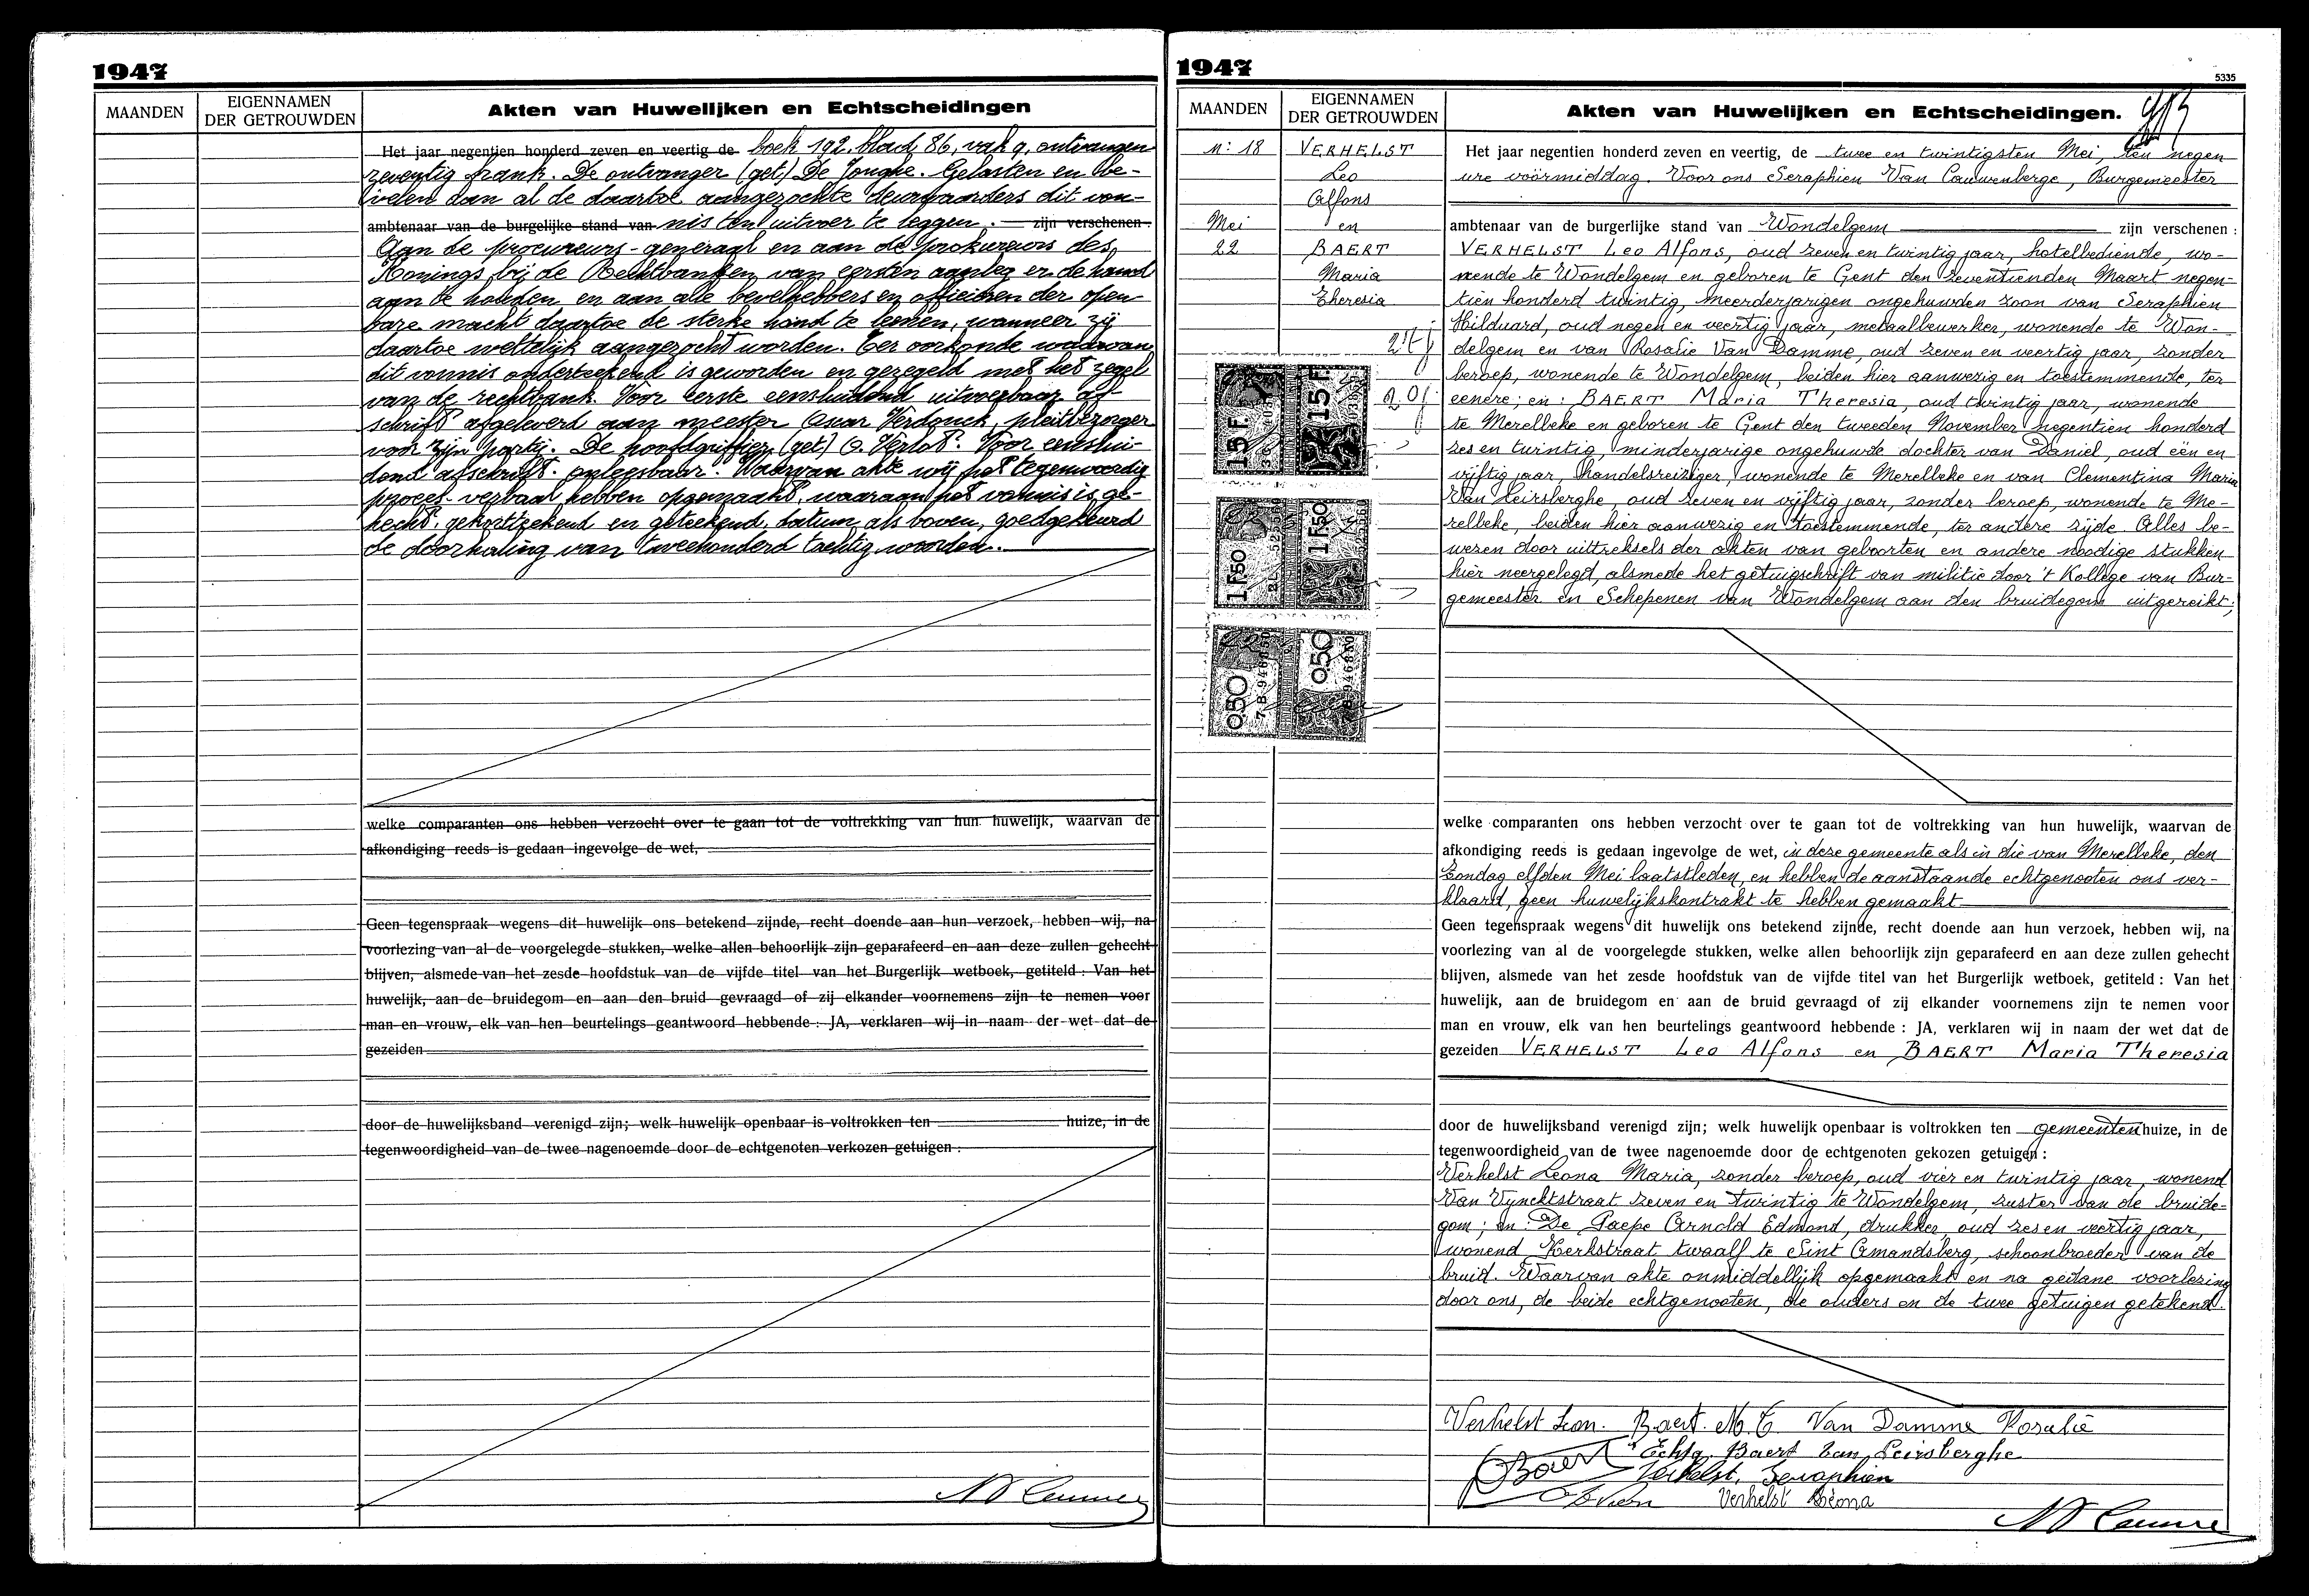 1947
MAANDEN
EIGENNAMEN
DER GETROUWDEN
Akten van Huwelijken en Echtscheidingen
Het jaar negentien honderd zeven en veertig de boek 192, blad 86, vak 9, ontvangen
zeventig frank. De ontvanger (get) De Jonghe. Gelasten en be-
velen dan al de daartoe aangezochte deurwaarders dit von-
ambtenaar van de burgelijke stand van nis ten uitvoer te leggen. zijn verschenen:
Aan de procureurs-generaal en aan de prokureurs des
Konings bij de Rechtbanken van eersten aanleg er de hand
aan te houden en aan alle bevelhebbers en officieren der open-
bare macht daartoe de sterke hand te lenen, wanneer zij
daartoe wettelijk aangezocht worden. Ter oorkonde waarvan
dit vonnis ondertekend is geworden en gezegeld met het zegel
van de rechtbank. Voor eerste eensluidend uitvoerbaar af-
schrift afgeleverd aan meester Oscar Verdonck, pleitbezorger
voor zijn partij. De hoofdgriffier (get) O. Verlot. Voor eenslui-
dend afschrift. onleesbaar. Waarvan akte wij het tegenwoordig
proces-verbaal hebben opgemaakt, waaraan het vonnis is ge-
hecht, gekortizekend en getekend, datum als boven, goedgekeurd
de doorhaling van tweehonderd tachtig woorden.
welke comparanten ons hebben verzocht over te gaan tot de voltrekking van hun huwelijk, waarvan de
afkondiging reeds is gedaan ingevolge de wet,
Geen tegenspraak wegens dit huwelijk ons betekend zijnde, recht doende aan hun verzoek, hebben wij, na
voorlezing van al de voorgelegde stukken, welke allen behoorlijk zijn geparafeerd en aan deze zullen gehecht
blijven, alsmede van het zesde hoofdstuk van de vijfde titel van het Burgerlijk wetboek, getiteld : Van het
huwelijk, aan de bruidegom en aan den bruid gevraagd of zij elkander voornemens zijn te nemen voor
man en vrouw, elk van hen beurtelings geantwoord hebbende : JA, verklaren wij in naam der wet dat de
gezeiden
door de huwelijksband verenigd zijn; welk huwelijk openbaar is voltrokken ten huize, in de
tegenwoordigheid van de twee nagenoemde door de echtgenoten verkozen getuigen :
1947
5335
MAANDEN
EIGENNAMEN
DER GETROUWDEN
Akten van Huwelijken en Echtscheidingen.
N: 18
Mei
22
VERHELST
Leo
Alfons
en
BAERT
Maria
Theresia
15 F.
15 F.
1 F50
1 F50
0.50
0.50
7.B.946880
Het jaar negentien honderd zeven en veertig, de twee en twintigsten Mei, ten negen
ure voormiddag. Voor ons Seraphien Van Cauwenberge, Burgemeester
ambtenaar van de burgerlijke stand van Wondelgem zijn verschenen :
VERHELST Leo Alfons, oud zeven en twintig jaar, hotelbediende, wo-
nende te Wondelgem en geboren te Gent den zeventienden Maart negen-
tien honderd twintig, meerderjarigen ongehuwden zoon van Seraphien
Hilduard, oud negen en veertig jaar, metaalbewerker, wonende te Won-
delgem en van Rosalie Van Damme, oud zeven en veertig jaar, zonder
beroep, wonende te Wondelgem, beiden hier aanwezig en toestemmende, ter
eenere; en : BAERT Maria Theresia, oud twintig jaar, wonende
te Merelbeke en geboren te Gent den tweeden November negentien honderd
zes en twintig, minderjarige ongehuwde dochter van Daniel, oud eén en
vijftig jaar, handelsreiziger, wonende te Merelbeke en van Clementina Maria
Van Leirsberghe, oud zeven en vijftig jaar, zonder beroep, wonende te Me-
relbeke, beiden hier aanwezig en toestemmende, ter andere zijde. Alles be-
wezen door uittreksels der akten van geboorten en andere noodige stukken
hier neergelegd, alsmede het getuigschrift van militie door 't Kollege van Bur-
gemeester en Schepenen van Wondelgem aan den bruidegom uitgereikt;
welke comparanten ons hebben verzocht over te gaan tot de voltrekking van hun huwelijk, waarvan de
afkondiging reeds is gedaan ingevolge de wet, in deze gemeente als in die van Merelbeke, den
Zondag elfden Mei laatstleden, en hebben de aanstaande echtgenooten ons ver-
klaard, geen huwelijkskontrakt te hebben gemaakt
Geen tegenspraak wegens dit huwelijk ons betekend zijnde, recht doende aan hun verzoek, hebben wij, na
voorlezing van al de voorgelegde stukken, welke allen behoorlijk zijn geparafeerd en aan deze zullen gehecht
blijven, alsmede van het zesde hoofdstuk van de vijfde titel van het Burgerlijk wetboek, getiteld : Van het
huwelijk, aan de bruidegom en aan de bruid gevraagd of zij elkander voornemens zijn te nemen voor
man en vrouw, elk van hen beurtelings geantwoord hebbende : JA, verklaren wij in naam der wet dat de
gezeiden VERHELST Leo Alfons en BAERT Maria Theresia
door de huwelijksband verenigd zijn; welk huwelijk openbaar is voltrokken ten gemeentenhuize, in de
tegenwoordigheid van de twee nagenoemde door de echtgenoten gekozen getuigen :
Verhelst Leona Maria, zonder beroep, oud vier en twintig jaar, wonend
Van Vyncktstraat zeven en twintig te Wondelgem, zuster van de bruide-
gom; en : De Paepe Arnold Edmond, drukker, oud zes en veertig jaar,
wonend Kerkstraat twaalf te Sint Amandsberg, schoonbroeder van de
bruid. Waarvan akte onmiddellijk opgemaakt en na gedane voorlezing
door ons, de beide echtgenooten, de ouders en de twee getuigen getekend.
Verhelst Leon. Baert. M. T. Van Damme Rosalie
Echtg. Baert Van Leirsberghe
Baert Verhelst, Seraphien
Verhelst Léona